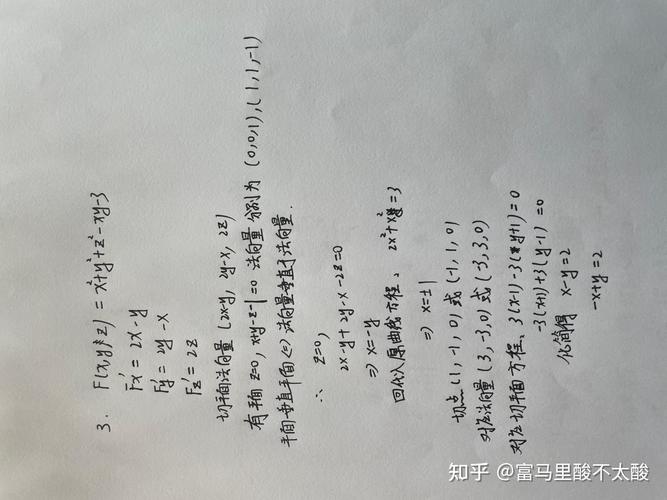 3. F(x,y,z) = x²+y²+z²-xy-3
Fx' = 2x-y
Fy' = 2y-x
Fz' = 2z
切平面法向量 (2x-y, 2y-x, 2z)
有平面 z=0, x+y-z-1=0 法向量分别为 (0,0,1), (1,1,-1)
平面垂直平面 <=> 法向量垂直于法向量.
∴ z=0,
2x-y+2y-x-2z=0
=> x=-y
回代入原曲线方程、 2x²+x²=3
=> x=±1
切点 (1,-1,0) 或 (-1,1,0)
对应法向量 (3,-3,0) 或 (-3,3,0)
对应切平面方程、 3(x-1)-3(y+1)=0
-3(x+1)+3(y-1)=0
化简得 x-y=2
-x+y=2
知乎 @富马里酸不太酸